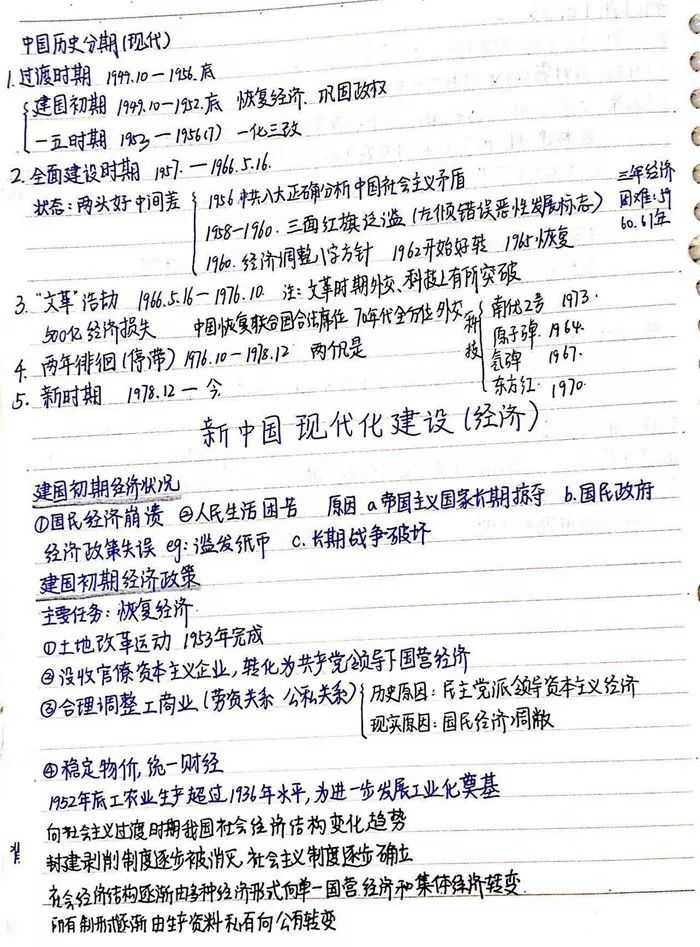 中国历史分期(现代)
1.过渡时期 1949.10—1956.底
建国初期 1949.10—1952.底 恢复经济、巩固政权
一五时期 1953—1956(7) 一化三改
2.全面建设时期 1957.—1966.5.16.
状态:两头好中间差
1956.中共八大正确分析中国社会主义矛盾
1958-1960.三面红旗泛滥(左倾错误恶性发展标志)
1960.经济调整八字方针 1962开始好转 1965恢复
三年经济
困难:59
60.61年
3."文革"浩劫 1966.5.16—1976.10. 注:文革时期外交、科技上有所突破
500亿经济损失 中国恢复联合国合法席位 70年代全方位外交
科技
南优2号 1973.
原子弹. 1964.
氢弹 1967.
东方红. 1970.
4.两年徘徊(停滞)1976.10—1978.12 两个凡是
5.新时期 1978.12—今
新中国现代化建设(经济)
建国初期经济状况
①国民经济崩溃 ②人民生活困苦 原因 a.帝国主义国家长期掠夺 b.国民政府
经济政策失误 eg:滥发纸币 c.长期战争破坏
建国初期经济政策
主要任务:恢复经济
①土地改革运动 1953年完成
②没收官僚资本主义企业,转化为共产党领导下国营经济
③合理调整工商业(劳资关系 公私关系)
历史原因:民主党派领导资本主义经济
现实原因:国民经济凋敝
④稳定物价,统一财经
1952年底工农业生产超过1936年水平,为进一步发展工业化奠基
向社会主义过渡时期我国社会经济结构变化趋势
封建剥削制度逐步被消灭,社会主义制度逐步确立
社会经济结构逐渐由多种经济形式向单一国营经济和集体经济转变
所有制形式逐渐由生产资料私有向公有转变